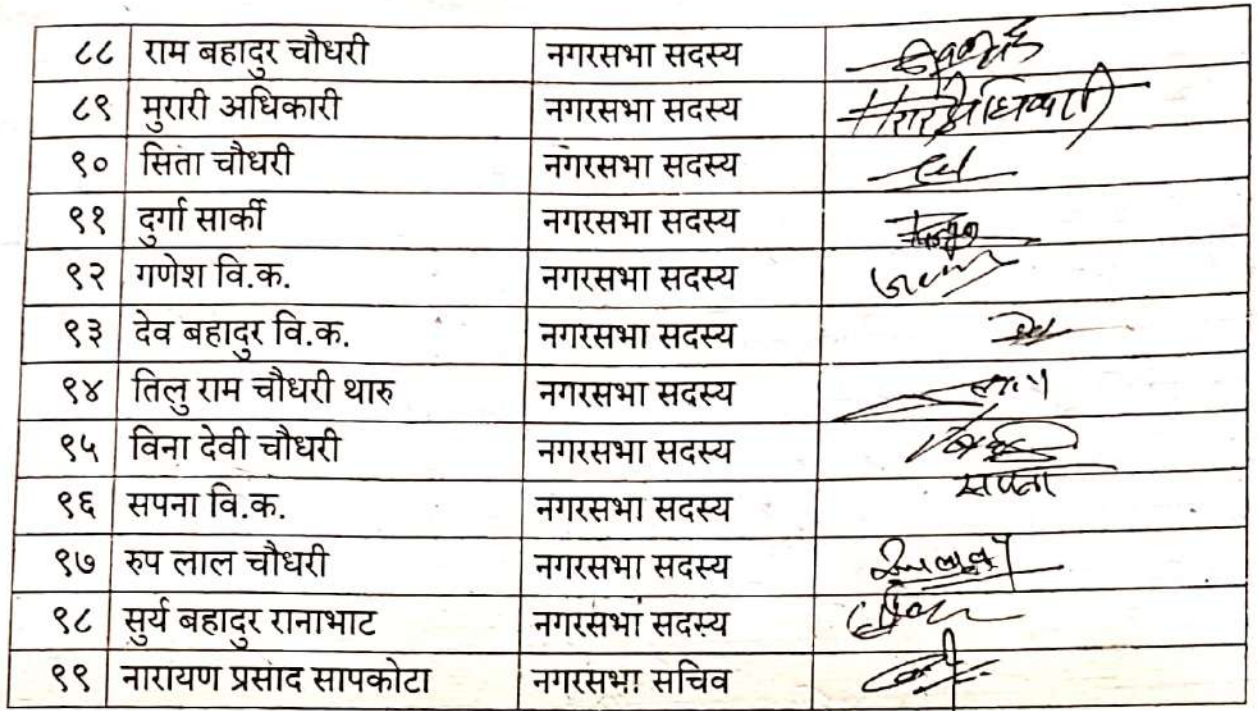 ८८ राम बहादुर चौधरी नगरसभा सदस्य
८९ मुरारी अधिकारी नगरसभा सदस्य
९० सिता चौधरी नगरसभा सदस्य
९१ दुर्गा सार्की नगरसभा सदस्य
९२ गणेश वि.क. नगरसभा सदस्य
९३ देव बहादुर वि.क. नगरसभा सदस्य
९४ तिलु राम चौधरी थारु नगरसभा सदस्य
९५ विना देवी चौधरी नगरसभा सदस्य
९६ सपना वि.क. नगरसभा सदस्य सपना
९७ रुप लाल चौधरी नगरसभा सदस्य
९८ सुर्य बहादुर रानाभाट नगरसभा सदस्य
९९ नारायण प्रसाद सापकोटा नगरसभा सचिव